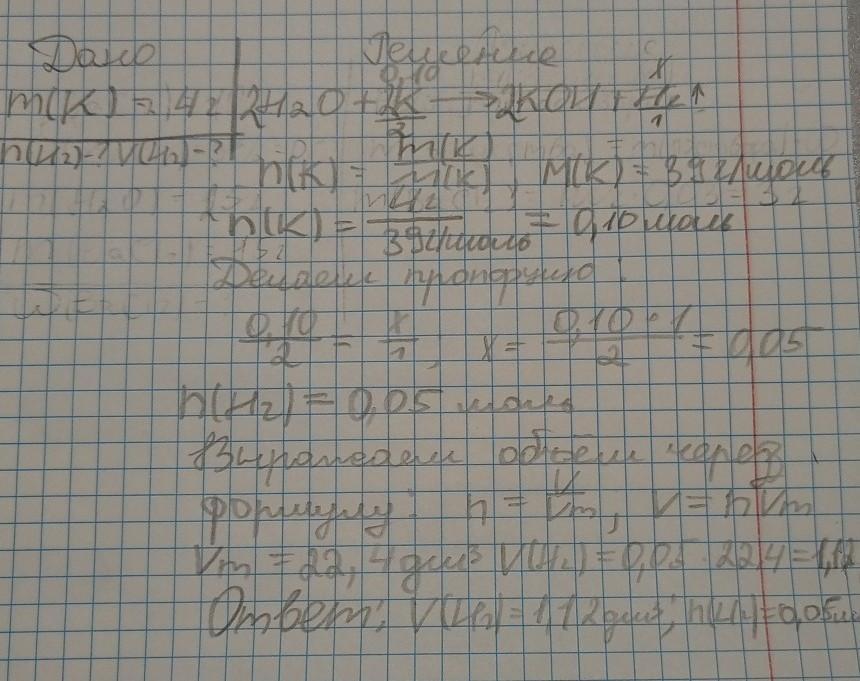 Дано Решение
0,10 x
m(K) = 4г 2H2O + 2K → 2KOH + H2↑
2 1
n(H2)-? V(H2)-? n(K) = m(K) / M(K) ; M(K) = 39 г/моль
n(K) = 4г / 39г/моль = 0,10 моль
Делаем пропорцию :
0,10 / 2 = x / 1 , x = 0,10 · 1 / 2 = 0,05
n(H2) = 0,05 моль
Выражаем объём через
формулу: n = V / Vm ; V = n Vm
Vm = 22,4 дм³ V(H2) = 0,05 · 22,4 = 1,12
Ответ: V(H2) = 1,12 дм³; n(H2) = 0,05